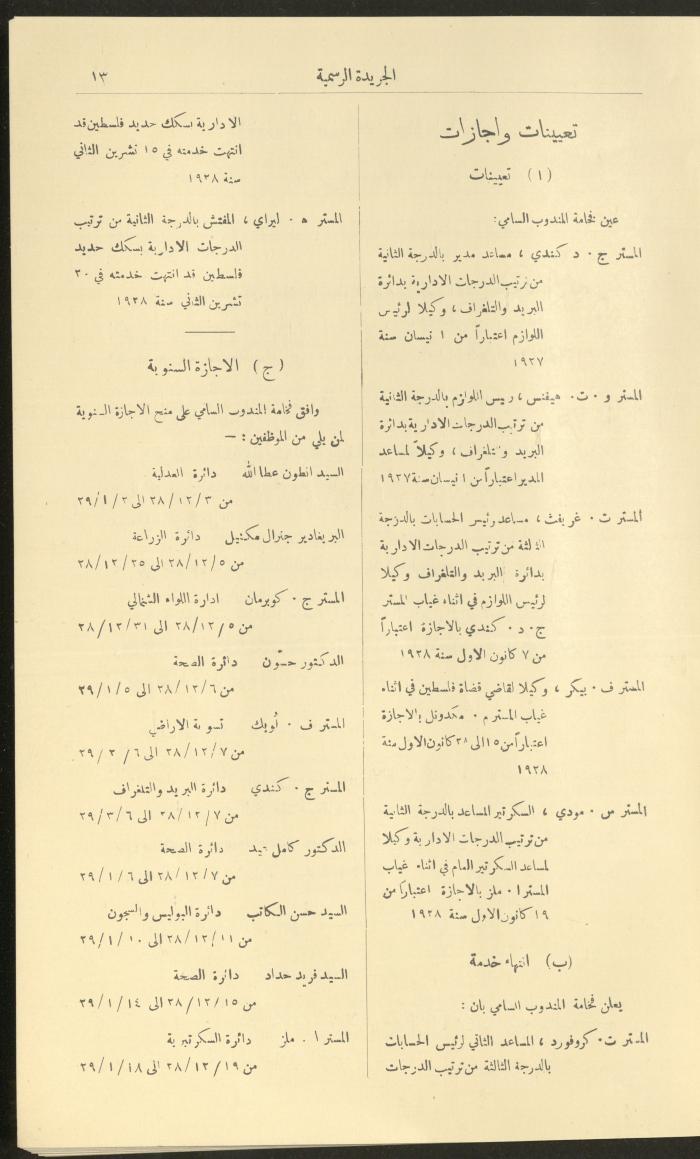 الجريدة الرسمية
١٣
تعيينات واجازات
(١) تعيينات
عين فخامة المندوب السامي:
المستر ج . د كندي ، مساعد مدير بالدرجة الثانية
من ترتيب الدرجات الادارية بدائرة
البريد والتلغراف ، وكيلا لرئيس
اللوازم اعتباراً من ١ نيسان سنة
١٩٢٧
المستر و . ت . هيفنس ، رييس اللوازم بالدرجة الثانية
من ترتيب الدرجات الادارية بدائرة
البريد والتلغراف ، وكيلاً لمساعد
المدير اعتباراً من ١ نيسان سنة ١٩٢٧
المستر ت . غريفث ، مساعد رئيس الحسابات بالدرجة
الثالثة من ترتيب الدرجات الادارية
بدائرة البريد والتلغراف وكيلا
لرئيس اللوازم في اثناء غياب المستر
ج . د . كندي بالاجازة اعتباراً
من ٧ كانون الاول سنة ١٩٢٨
المستر ف . بيكر ، وكيلا لقاضي قضاة فلسطين في اثناء
غياب المستر م . مكدونل بالاجازة
اعتباراً من ١٥ الى ٢٨ كانون الاول سنة
١٩٢٨
المستر س . مودي ، السكرتير المساعد بالدرجة الثانية
من ترتيب الدرجات الادارية وكيلا
لمساعد السكرتير العام في اثناء غياب
المستر ا . ملز بالاجازة اعتبارا من
١٩ كانون الاول سنة ١٩٢٨
(ب) انتهاء خدمة
يعلن فخامة المندوب السامي بان :
المستر ت . كروفورد ، المساعد الثاني لرئيس الحسابات
بالدرجة الثالثة من ترتيب الدرجات
الادارية بسكك حديد فلسطين قد
انتهت خدمته في ١٥ تشرين الثاني
سنة ١٩٢٨
المستر ه . ليراي ، المفتش بالدرجة الثانية من ترتيب
الدرجات الادارية بسكك حديد
فلسطين قد انتهت خدمته في ٣٠
تشرين الثاني سنة ١٩٢٨
(ج) الاجازة السنوية
وافق فخامة المندوب السامي على منح الاجازة السنوية
لمن يلي من الموظفين : —
السيد انطون عطا الله دائرة العدلية
من ٣/١٢/٢٨ الى ٢/١/٢٩
البريغادير جنرال مكنيل دائرة الزراعة
من ٥/١٢/٢٨ الى ٢٥/١٢/٢٨
المستر ج . كوبرمان ادارة اللواء الشمالي
من ٥/١٢/٢٨ الى ٣١/١٢/٢٨
الدكتور حسّون دائرة الصحة
من ٦/١٢/٢٨ الى ٥/١/٢٩
المستر ف . لُويك تسوية الاراضي
من ٧/١٢/٢٨ الى ٦/٢/٢٩
المستر ج . كندي دائرة البريد والتلغراف
من ٧/١٢/٢٨ الى ٦/٣/٢٩
الدكتور كامل دائرة الصحة
من ٧/١٢/٢٨ الى ٦/١/٢٩
السيد حسن الكاتب دائرة البوليس والسجون
من ١١/١٢/٢٨ الى ١٠/١/٢٩
السيد فريد حداد دائرة الصحة
من ١٥/١٢/٢٨ الى ١٤/١/٢٩
المستر ا . ملز دائرة السكرتيرية
من ١٩/١٢/٢٨ الى ١٨/١/٢٩